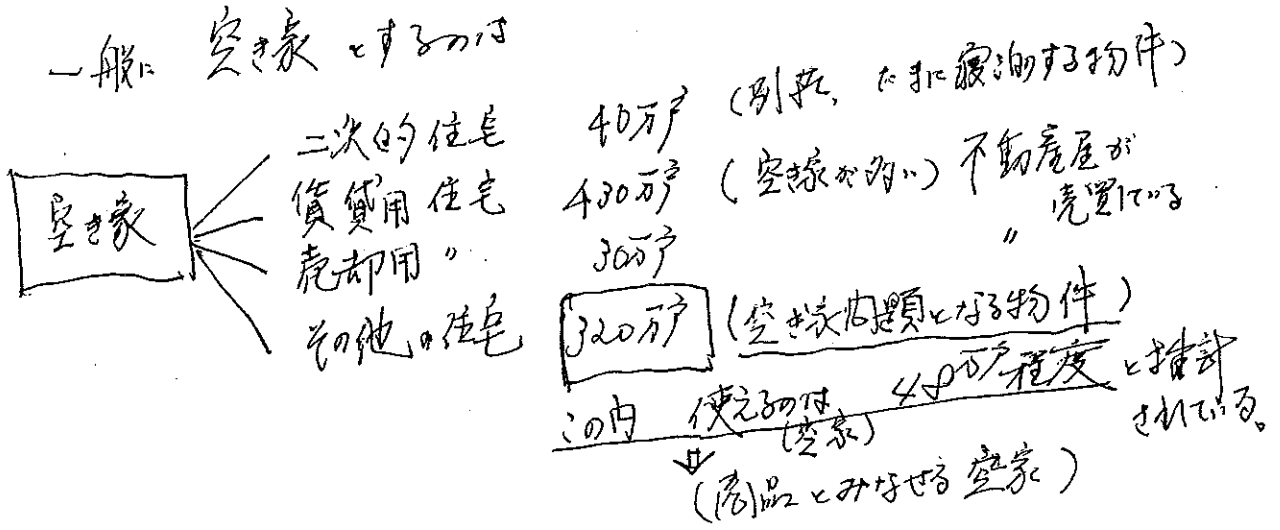 一般に 空き家とするのは
空き家
二次的住宅 40万戸 (別荘、たまに寝泊する物件)
賃貸用住宅 430万戸 (空き家が多い) 不動産屋が
売買している
売却用 〃 30万戸 〃
その他の住宅 320万戸 (空き家問題となる物件)
この内 使えるのは 48万戸程度と推計
されている。
(空家)
⇓
(商品とみなせる空家)